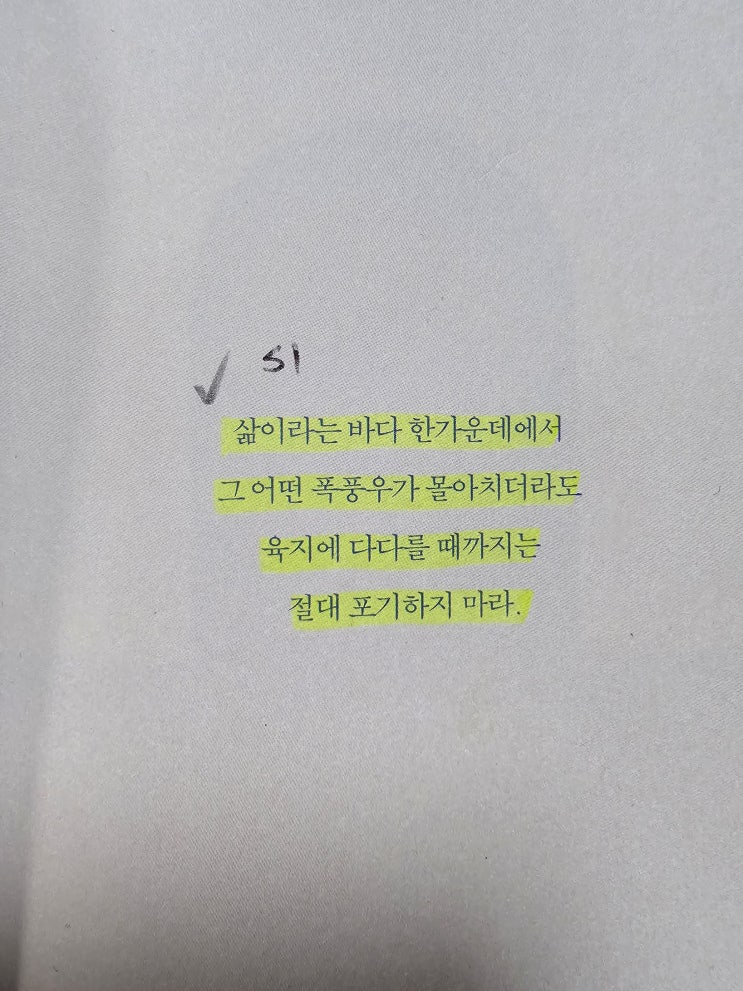 ✓ SI
삶이라는 바다 한가운데에서
그 어떤 폭풍우가 몰아치더라도
육지에 다다를 때까지는
절대 포기하지 마라.